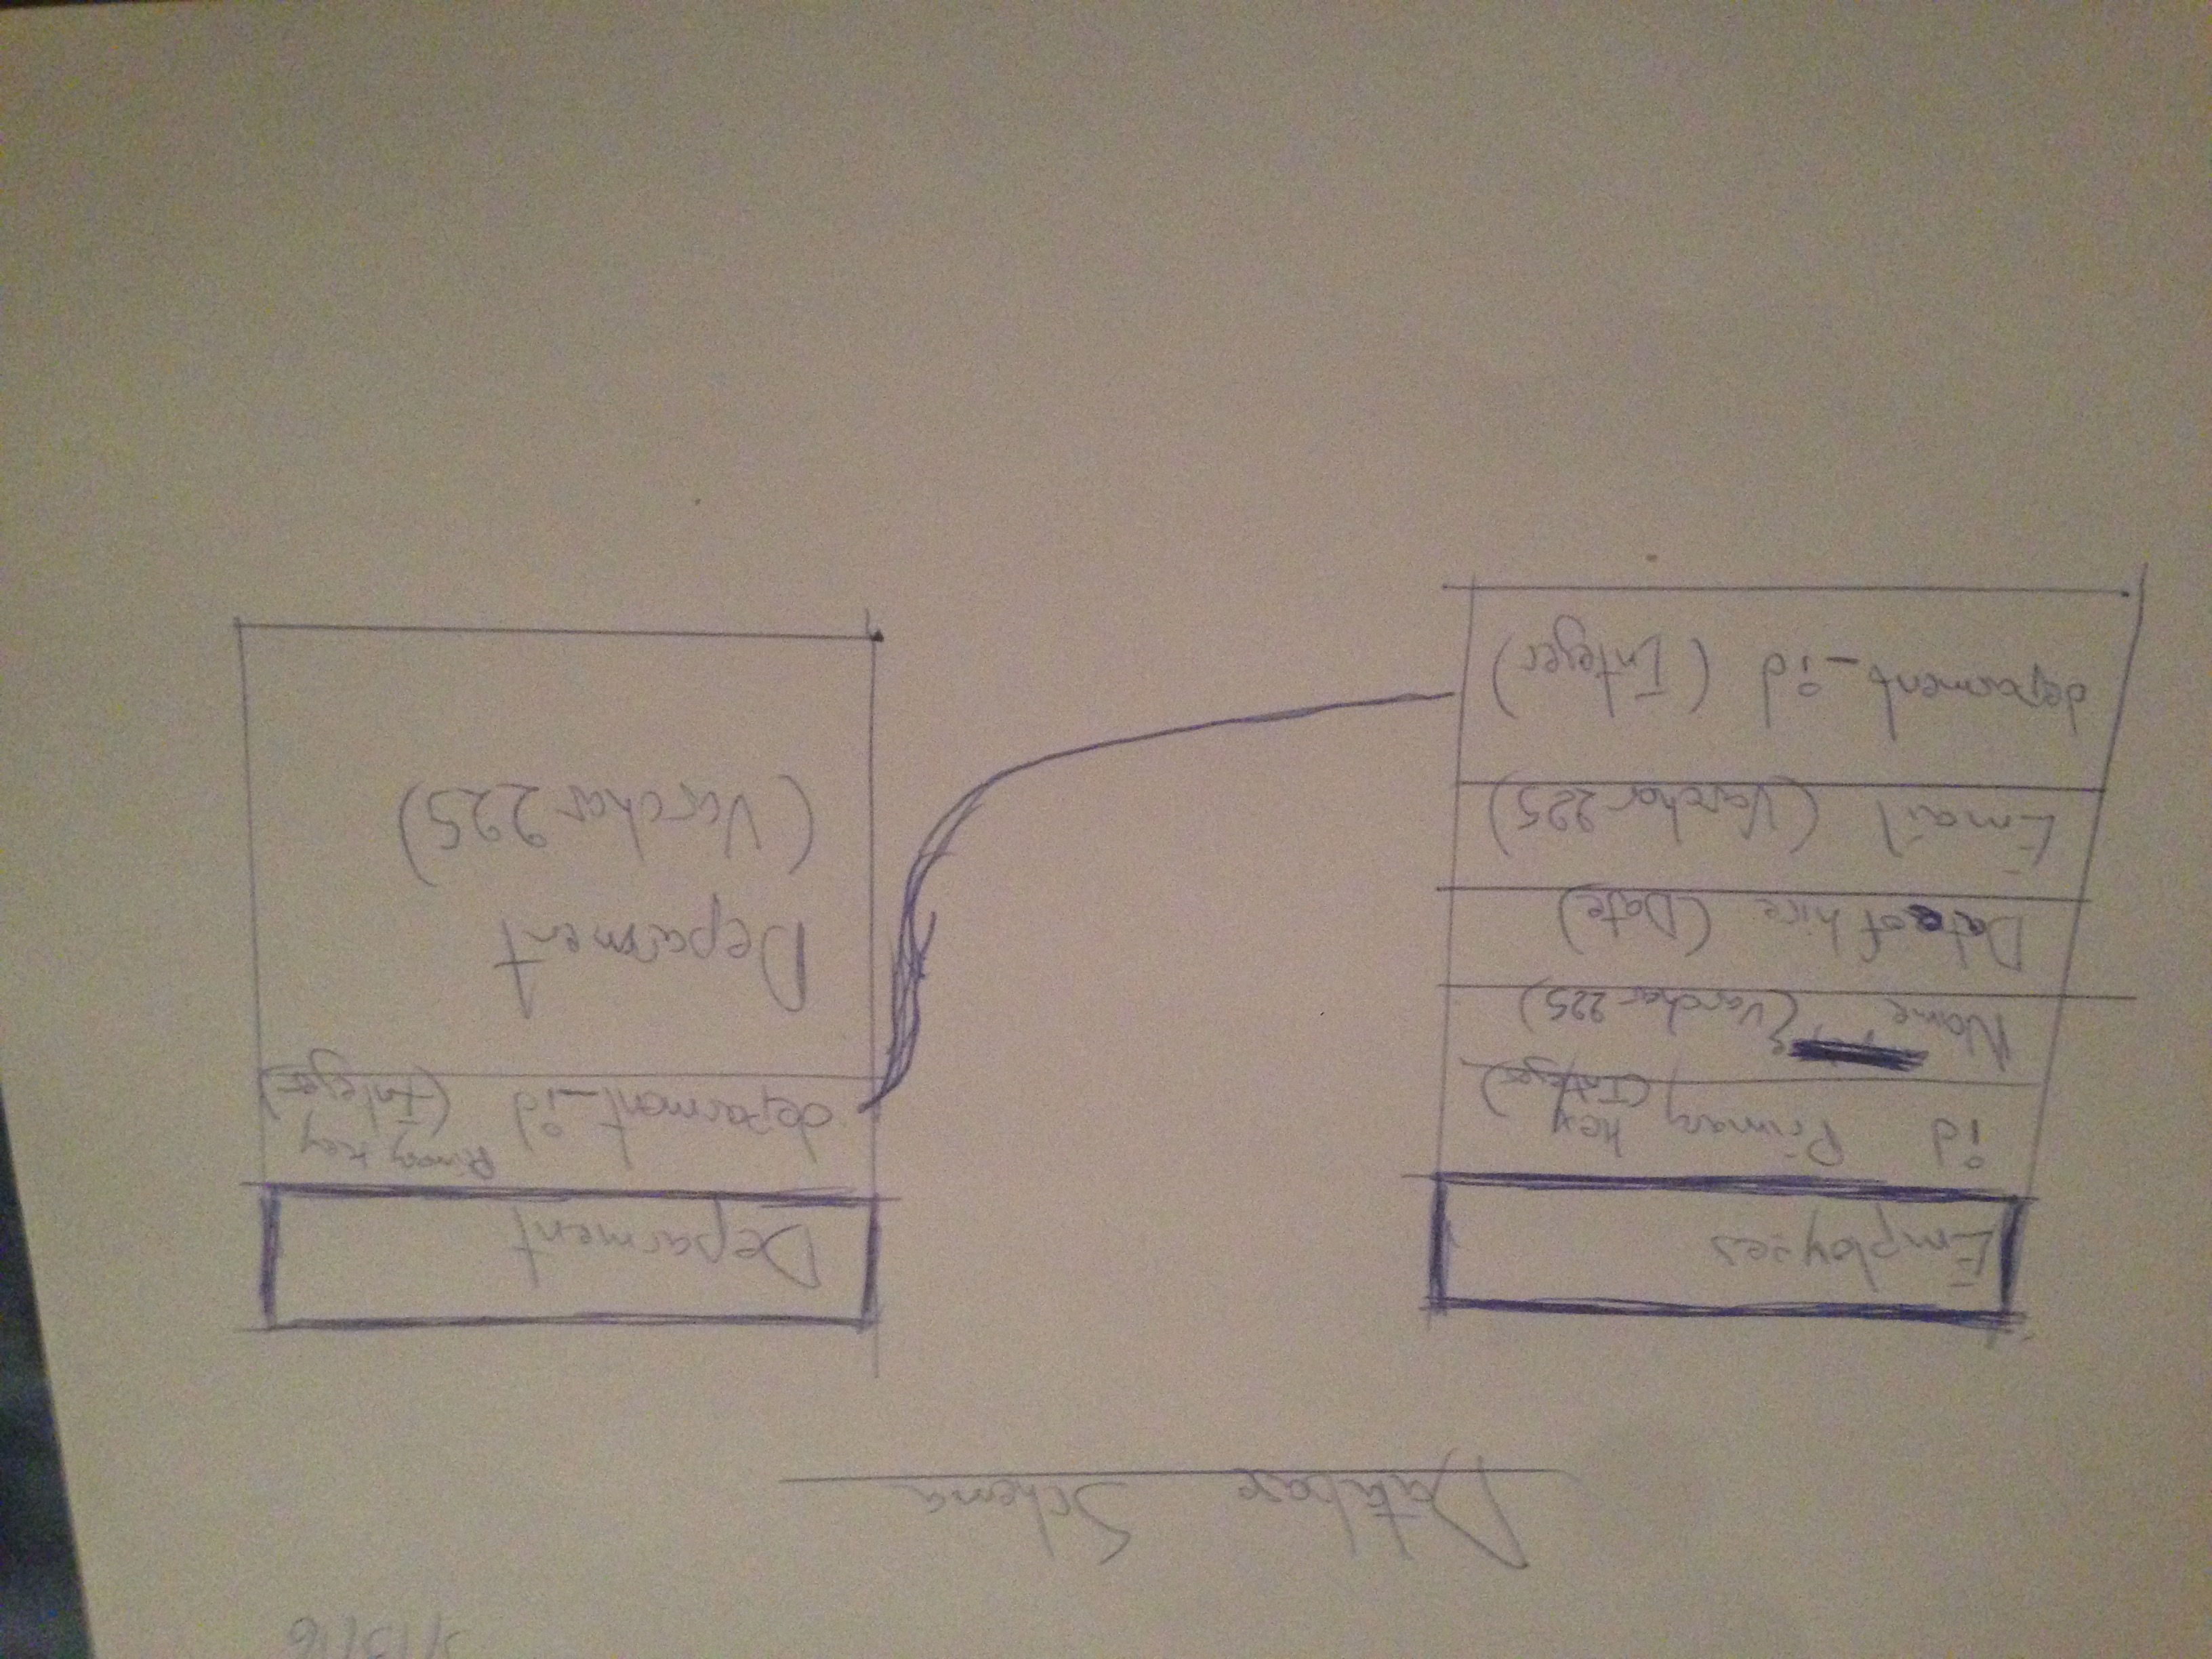 5/13/16
Database Schema
Employees
id Primary key
(Integer)
Name (Varchar 225)
Date of hire (Date)
Email (Varchar 225)
deparment_id (Integer)
Deparment
Primary key
deparment_id (Integer)
Deparment
(Varchar 225)